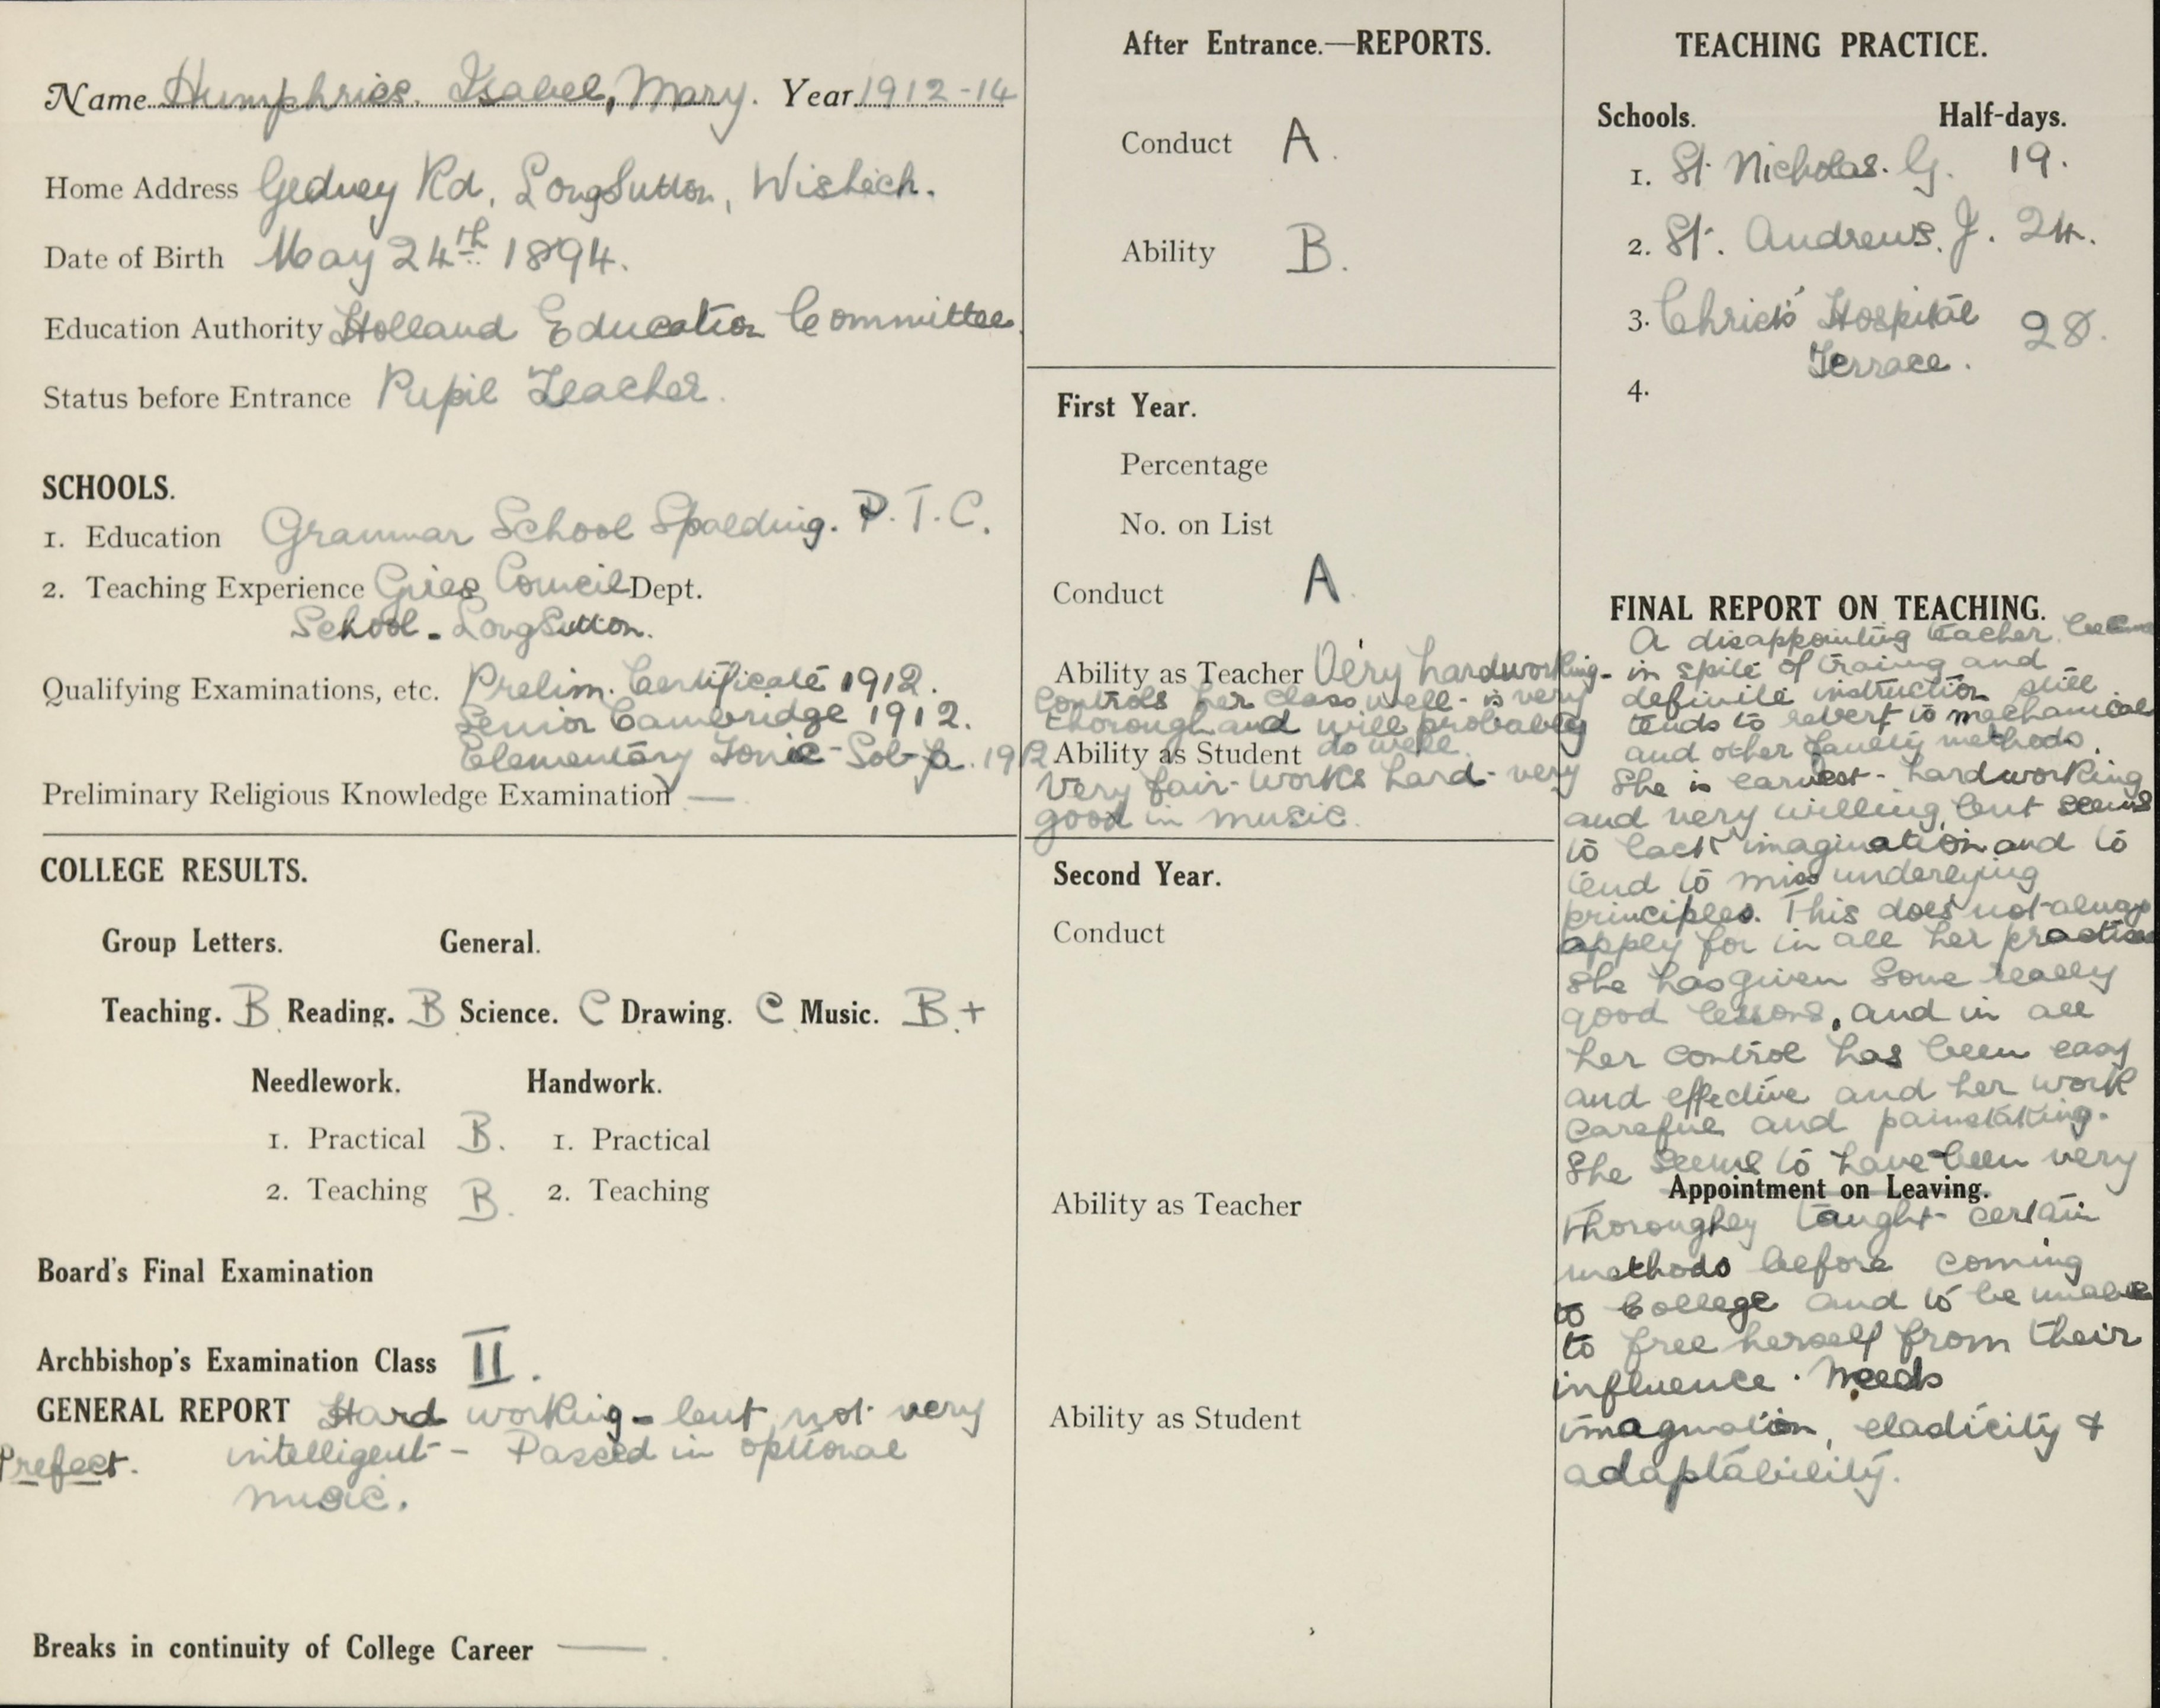 Name Humphries. Isabel, Mary. Year 1912-14
Home Address Gedney Rd, Long Sutton, Wisbech.
Date of Birth May 24th 1894.
Education Authority Holland Education Committee.
Status before Entrance Pupil Teacher.
SCHOOLS.
1. Education Grammar School Spalding. P.T.C.
2. Teaching Experience Girls Council Dept.
School - Long Sutton.
Qualifying Examinations, etc. Prelim. Certificate 1912.
Senior Cambridge 1912.
Elementary Tonic-Sol-fa. 1912
Preliminary Religious Knowledge Examination —
COLLEGE RESULTS.
Group Letters. General.
Teaching. B Reading. B Science. C Drawing. C Music. B+
Needlework. Handwork.
1. Practical B. 1. Practical
2. Teaching B. 2. Teaching
Board's Final Examination
Archbishop's Examination Class II.
GENERAL REPORT Hard working - but not very
Prefect. intelligent - Passed in optional
music.
Breaks in continuity of College Career —
After Entrance.—REPORTS.
Conduct A.
Ability B.
First Year.
Percentage
No. on List
Conduct A.
Ability as Teacher Very hardworking-
controls her class well - is very
thorough and will probably
do well.
Ability as Student
Very fair - works hard - very
good in music.
Second Year.
Conduct
Ability as Teacher
Ability as Student
TEACHING PRACTICE.
Schools. Half-days.
1. St. Nicholas. G. 19.
2. St. Andrews. J. 24.
3. Christ's Hospital 28.
Terrace.
4.
FINAL REPORT ON TEACHING.
A disappointing teacher.
in spite of traing and
definite instruction still
tends to revert to mechanical
and other faulty methods.
She is earnest - hardworking
and very willing, but seems
to lack imagination and to
tend to miss underlying
principles. This does not always
apply for in all her practices
she has given some really
good lessons, and in all
her control has been easy
and effective and her work
careful and painstaking.
She seems to have been very
Appointment on Leaving.
thoroughly taught certain
methods before coming
to College and to be unable
to free herself from their
influence. Needs
imagination, elasticity &
adaptability.